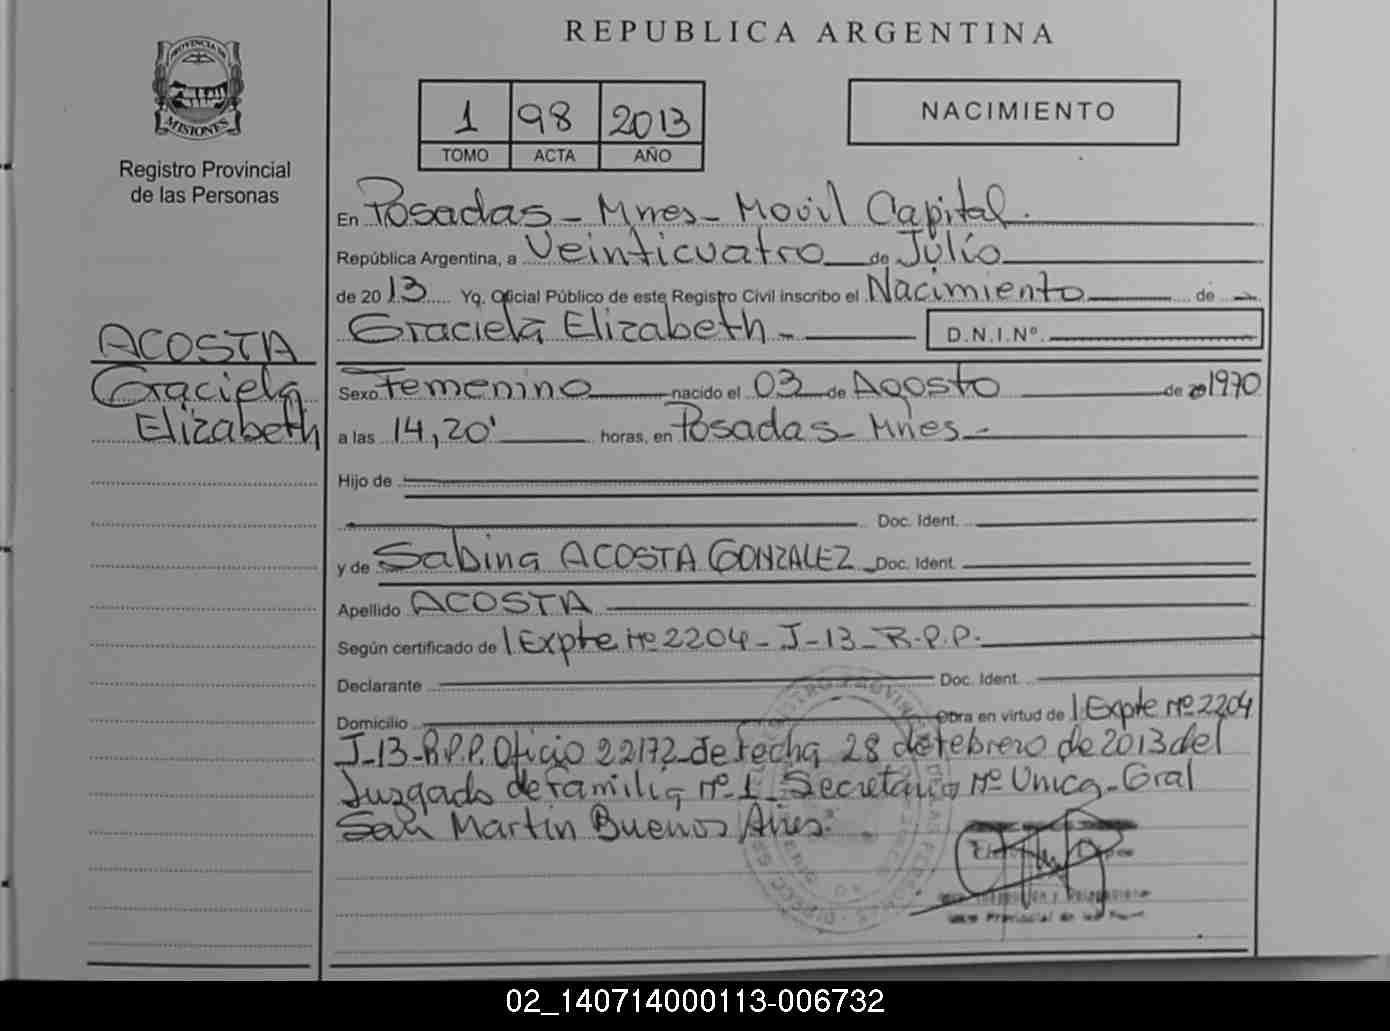 REPUBLICA ARGENTINA
PROVINCIA DE
MISIONES
Registro Provincial
de las Personas
1 98 2013
TOMO ACTA AÑO
NACIMIENTO
En Posadas - Mnes - Movil Capital.
República Argentina, a Veinticuatro de Julio
de 2013 Yo. Oficial Público de este Registro Civil inscribo el Nacimiento de
Graciela Elizabeth - D.N.I.Nº.
ACOSTA
Graciela
Elizabeth
Sexo Femenino nacido el 03 de Agosto de 1970
a las 14,20' horas, en Posadas - Mnes -
Hijo de
Doc. Ident.
y de Sabina ACOSTA GONZALEZ Doc. Ident.
Apellido ACOSTA
Según certificado de 1 Expte Nº 2204 - J - 13 - R.P.P.
Declarante Doc. Ident.
Domicilio Obra en virtud de 1 Expte Nº 2204
J-13-R.P.P. Oficio 22172 de fecha 28 de febrero de 2013 del
Juzgado de Familia nº 1 Secretaria Nº Unica - Gral
San Martin Buenos Aires.
02_140714000113-006732